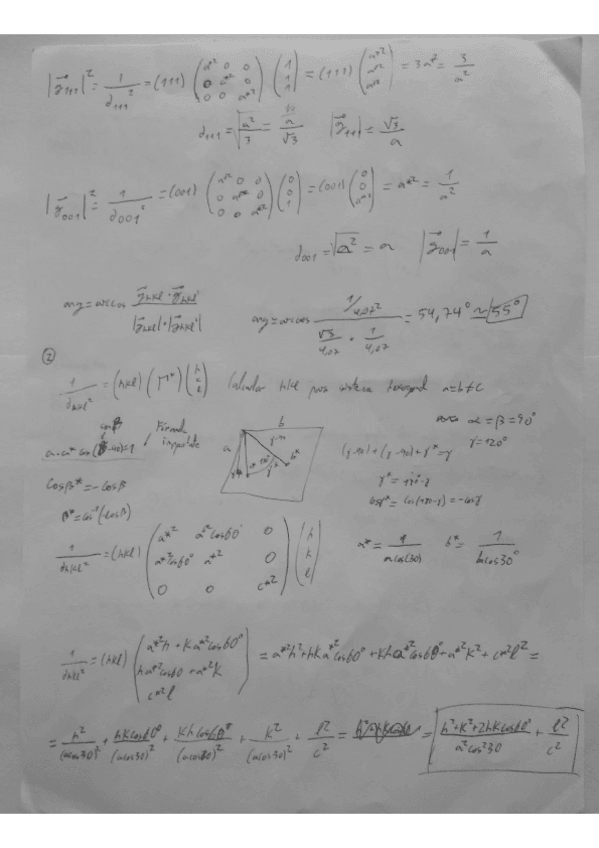 |g⃗₁₁₁|² = 1/d₁₁₁² = (111) (a*² 0 0 / 0 a*² 0 / 0 0 a*²) (1 / 1 / 1) = (111) (a*² / a*² / a*²) = 3a*² = 3/a²
d₁₁₁ = √(a²/3) = a/√3 |g⃗₁₁₁| = √3/a
|g⃗₀₀₁|² = 1/d₀₀₁² = (001) (a*² 0 0 / 0 a*² 0 / 0 0 a*²) (0 / 0 / 1) = (001) (0 / 0 / a*²) = a*² = 1/a²
d₀₀₁ = √a² = a |g⃗₀₀₁| = 1/a
ang = arccos (g⃗hkl · g⃗hkl')/(|g⃗hkl| · |g⃗hkl'|) ang = arccos (1/4,07²)/(√3/4,07 · 1/4,07) = 54,74° ≈ 55°
②
1/dhkl² = (hkl) (M*) (h / k / l) Calcular hkl para sistema hexagonal a=b≠c
a·a* cos(γ-90)=1 Fórmula importante
a b a* b* γ* γ-90
para α = β = 90°
γ = 120°
(γ-90)+(γ-90)+γ* = γ
cosβ* = -cosβ
γ* = 180-γ
cosγ* = cos(180-γ) = -cosγ
β* = cos⁻¹(-cosβ)
1/dhkl² = (hkl) (a*² a*²cos60° 0 / a*²cos60° a*² 0 / 0 0 c*²) (h / k / l) a* = 1/(a cos(30)) b* = 1/(b cos30°)
1/dhkl² = (hkl) (a*²h + ka*²cos60° / ha*²cos60 + a*²k / c*²l) = a*²h² + hka*²cos60° + kha*²cos60° + a*²k² + c*²l² =
= h²/(acos30)² + hkcos60°/(acos30)² + khcos60°/(acos30)² + k²/(acos30)² + l²/c² = = (h²+k²+2hkcos60°)/(a²cos²30) + l²/c²